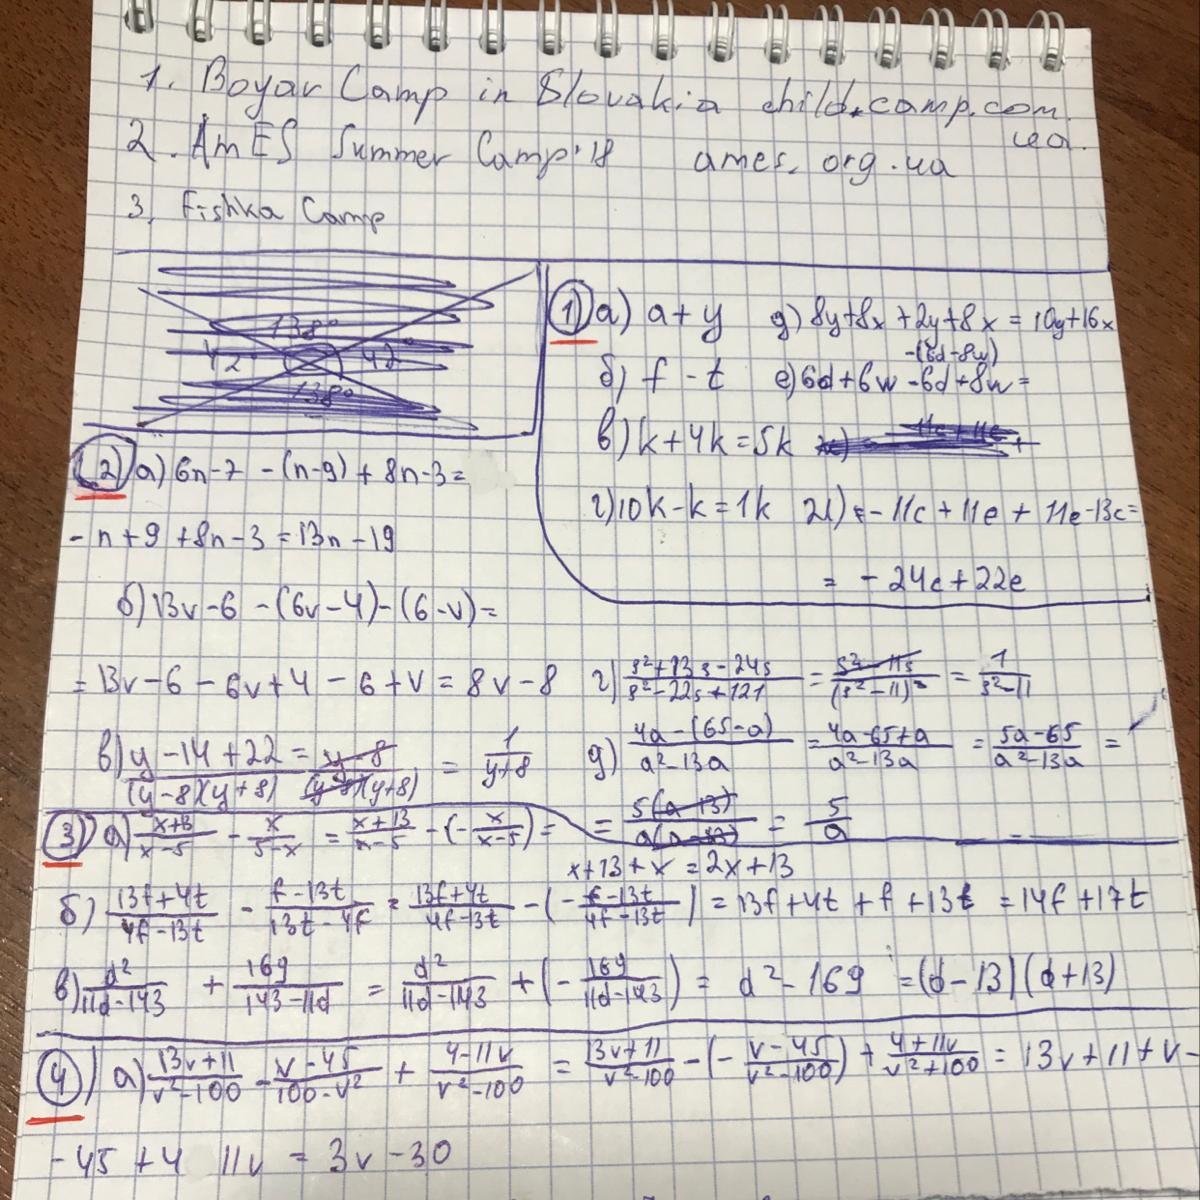 1. Boyar Camp in Slovakia child.camp.com.
ua.
2. AmES Summer Camp'18 ames.org.ua
3. Fishka Camp
138°
42° 42°
138°
1) а) a+y
д) 8y+8x+2y+8x = 10y+16x
-(6d-8w)
б) f-t
е) 6d+6w-6d+8w=
в) k+4k=5k
г) 10k-k=1k
-11c+11e+11e-13c=
= -24c+22e
2) а) 6n-7-(n-9)+8n-3=
-n+9+8n-3=13n-19
б) 13v-6-(6v-4)-(6-v)=
=13v-6-6v+4-6+v=8v-8
в) (y-14+22)/((y-8)(y+8)) = (y-8)/((y-8)(y+8)) = 1/(y+8)
г) (s²+13s-24s)/(s²-22s+121) = (s²-11s)/(s²-11)² = 1/(s²-11)
д) (4a-(65-a))/(a²-13a) = (4a-65+a)/(a²-13a) = (5a-65)/(a²-13a) =
= 5(a-13)/(a(a-13)) = 5/a
3) а) (x+13)/(x-5) - x/(5-x) = (x+13)/(x-5) - (-x/(x-5)) =
x+13+x=2x+13
б) (13f+4t)/(4f-13t) - (f-13t)/(13t-4f) = (13f+4t)/(4f-13t) - (-(f-13t)/(4f-13t)) = 13f+4t+f+13t = 14f+17t
в) d²/(11d-143) + 169/(143-11d) = d²/(11d-143) + (-169/(11d-143)) = d²-169 = (d-13)(d+13)
4) а) (13v+11)/(v²-100) - (v-45)/(100-v²) + (4-11v)/(v²-100) = (13v+11)/(v²-100) - (-(v-45)/(v²-100)) + (4+11v)/(v²+100) = 13v+11+v-
-45+4 11v = 3v-30